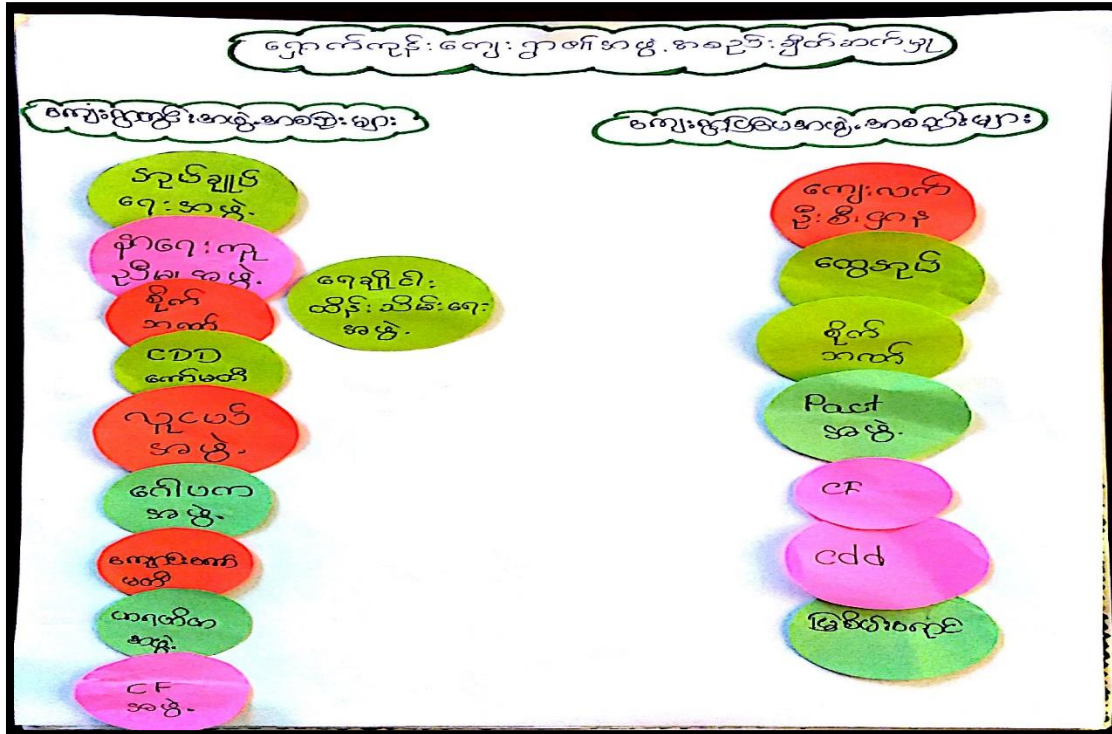 ရှောက်ကုန်းကျေးရွာ၏အဖွဲ့အစည်းချိတ်ဆက်မှု
ကျေးရွာတွင်းအဖွဲ့အစည်းများ
အုပ်ချုပ်
ရေးအဖွဲ့
နာရေးကူ
ညီမှုအဖွဲ့
စိုက်
ဘဏ်
CDD
ကော်မတီ
လူငယ်
အဖွဲ့
ဂေါပက
အဖွဲ့
ကျောင်းကော်
မတီ
ပရဟိတ
အဖွဲ့
CF
အဖွဲ့
ရေချိုငါး
ထိန်းသိမ်းရေး
အဖွဲ့
ကျေးရွာပြင်ပအဖွဲ့အစည်းများ
ကျေးလက်
ဦးစီးဌာန
ထွေအုပ်
စိုက်
ဘဏ်
Pact
အဖွဲ့
CF
cdd
မြစိမ်းရောင်